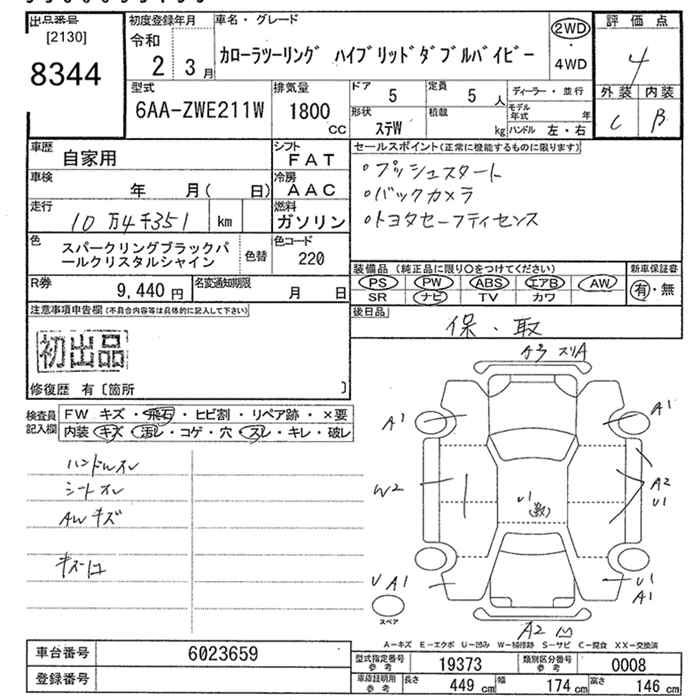 出品番号
[2130]
8344
初度登録年月
令和
2 3月
車名・グレード
カローラツーリング ハイブリッドダブルバイビー
2WD
・
4WD
評価点
4
外装 内装
C B
型式
6AA-ZWE211W
排気量
1800
CC
ドア 5
定員 5 人
形状
ステW
積載 kg
ディーラー・並行
モデル年式 年
ハンドル 左・右
車歴 自家用
シフト
FAT
車検 年 月( 日)
冷房
AAC
走行 10万4千351 km
燃料
ガソリン
色
スパークリングブラックパ
ールクリスタルシャイン
色替
色コード
220
R券 9,440 円
名変通知期限 月 日
セールスポイント(正常に機能するものに限ります)
・プッシュスタート
・バックカメラ
・トヨタセーフティセンス
装備品(純正品に限り○をつけてください)
PS PW ABS エアB AW
SR ナビ TV カワ
新車保証書
有・無
後日品
保・取
注意事項申告欄(不具合内容等は具体的に記入して下さい)
初出品
修復歴 有〔箇所 〕
検査員
記入欄
FW キズ・飛石・ヒビ割・リペア跡・×要
内装 キズ・汚レ・コゲ・穴・スレ・キレ・破レ
ハンドルスレ
シートスレ
AWキズ
スリA
A1
A1
W2
U1
A2
U1
U A1
U1
A1
A2
スペア
A-キズ E-エクボ U-凹み W-補修跡 S-サビ C-腐食 XX-交換済
車台番号 6023659
登録番号
型式指定番号
参考
19373
類別区分番号
参考
0008
車庫証明用
参考
長さ 449 cm
幅 174 cm
高さ 146 cm